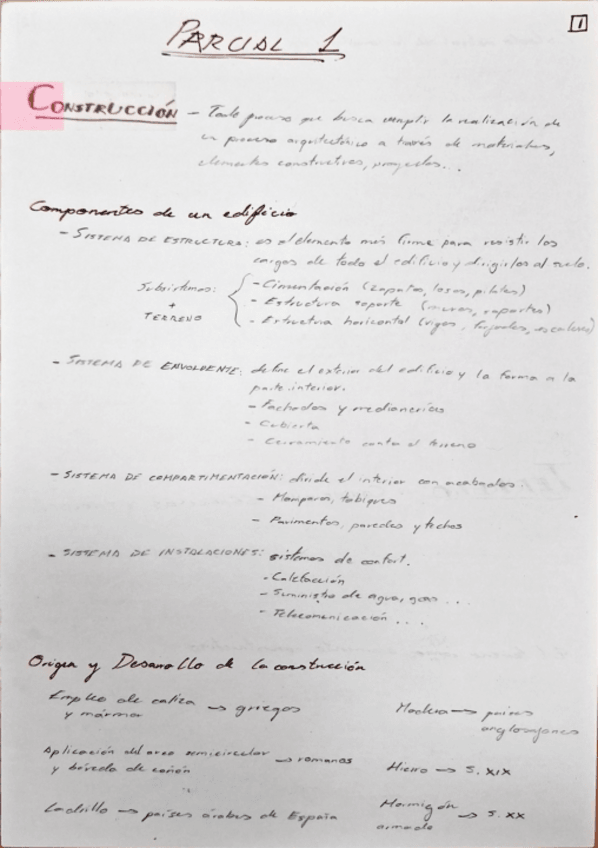 1
PARCIAL 1
CONSTRUCCIÓN - Todo proceso que busca cumplir la realización de
un proceso arquitectónico a través de materiales,
elementos constructivos, proyectos...
Componentes de un edificio
- SISTEMA DE ESTRUCTURA: es el elemento más firme para resistir las
cargas de todo el edificio y dirigirlas al suelo.
Subsistemas:
+
TERRENO
- Cimentación (zapatas, losas, pilotes)
- Estructura soporte (muros, soportes)
- Estructura horizontal (vigas, forjados, escaleras)
- SISTEMA DE ENVOLVENTE: define el exterior del edificio y la forma a la
parte interior.
- Fachadas y medianerías
- Cubierta
- Cerramiento contra el terreno
- SISTEMA DE COMPARTIMENTACIÓN: divide el interior con acabados.
- Mamparas, tabiques
- Pavimentos, paredes y techos
- SISTEMA DE INSTALACIONES: sistemas de confort.
- Calefacción
- Suministro de agua, gas...
- Telecomunicación...
Origen y Desarrollo de la construcción
Empleo de caliza
y mármol → griegos
Madera → países
anglosajones
Aplicación del arco semicircular
y bóveda de cañón → romanos
Hierro → S. XIX
Ladrillo → países árabes de España
Hormigón
armado → S. XX